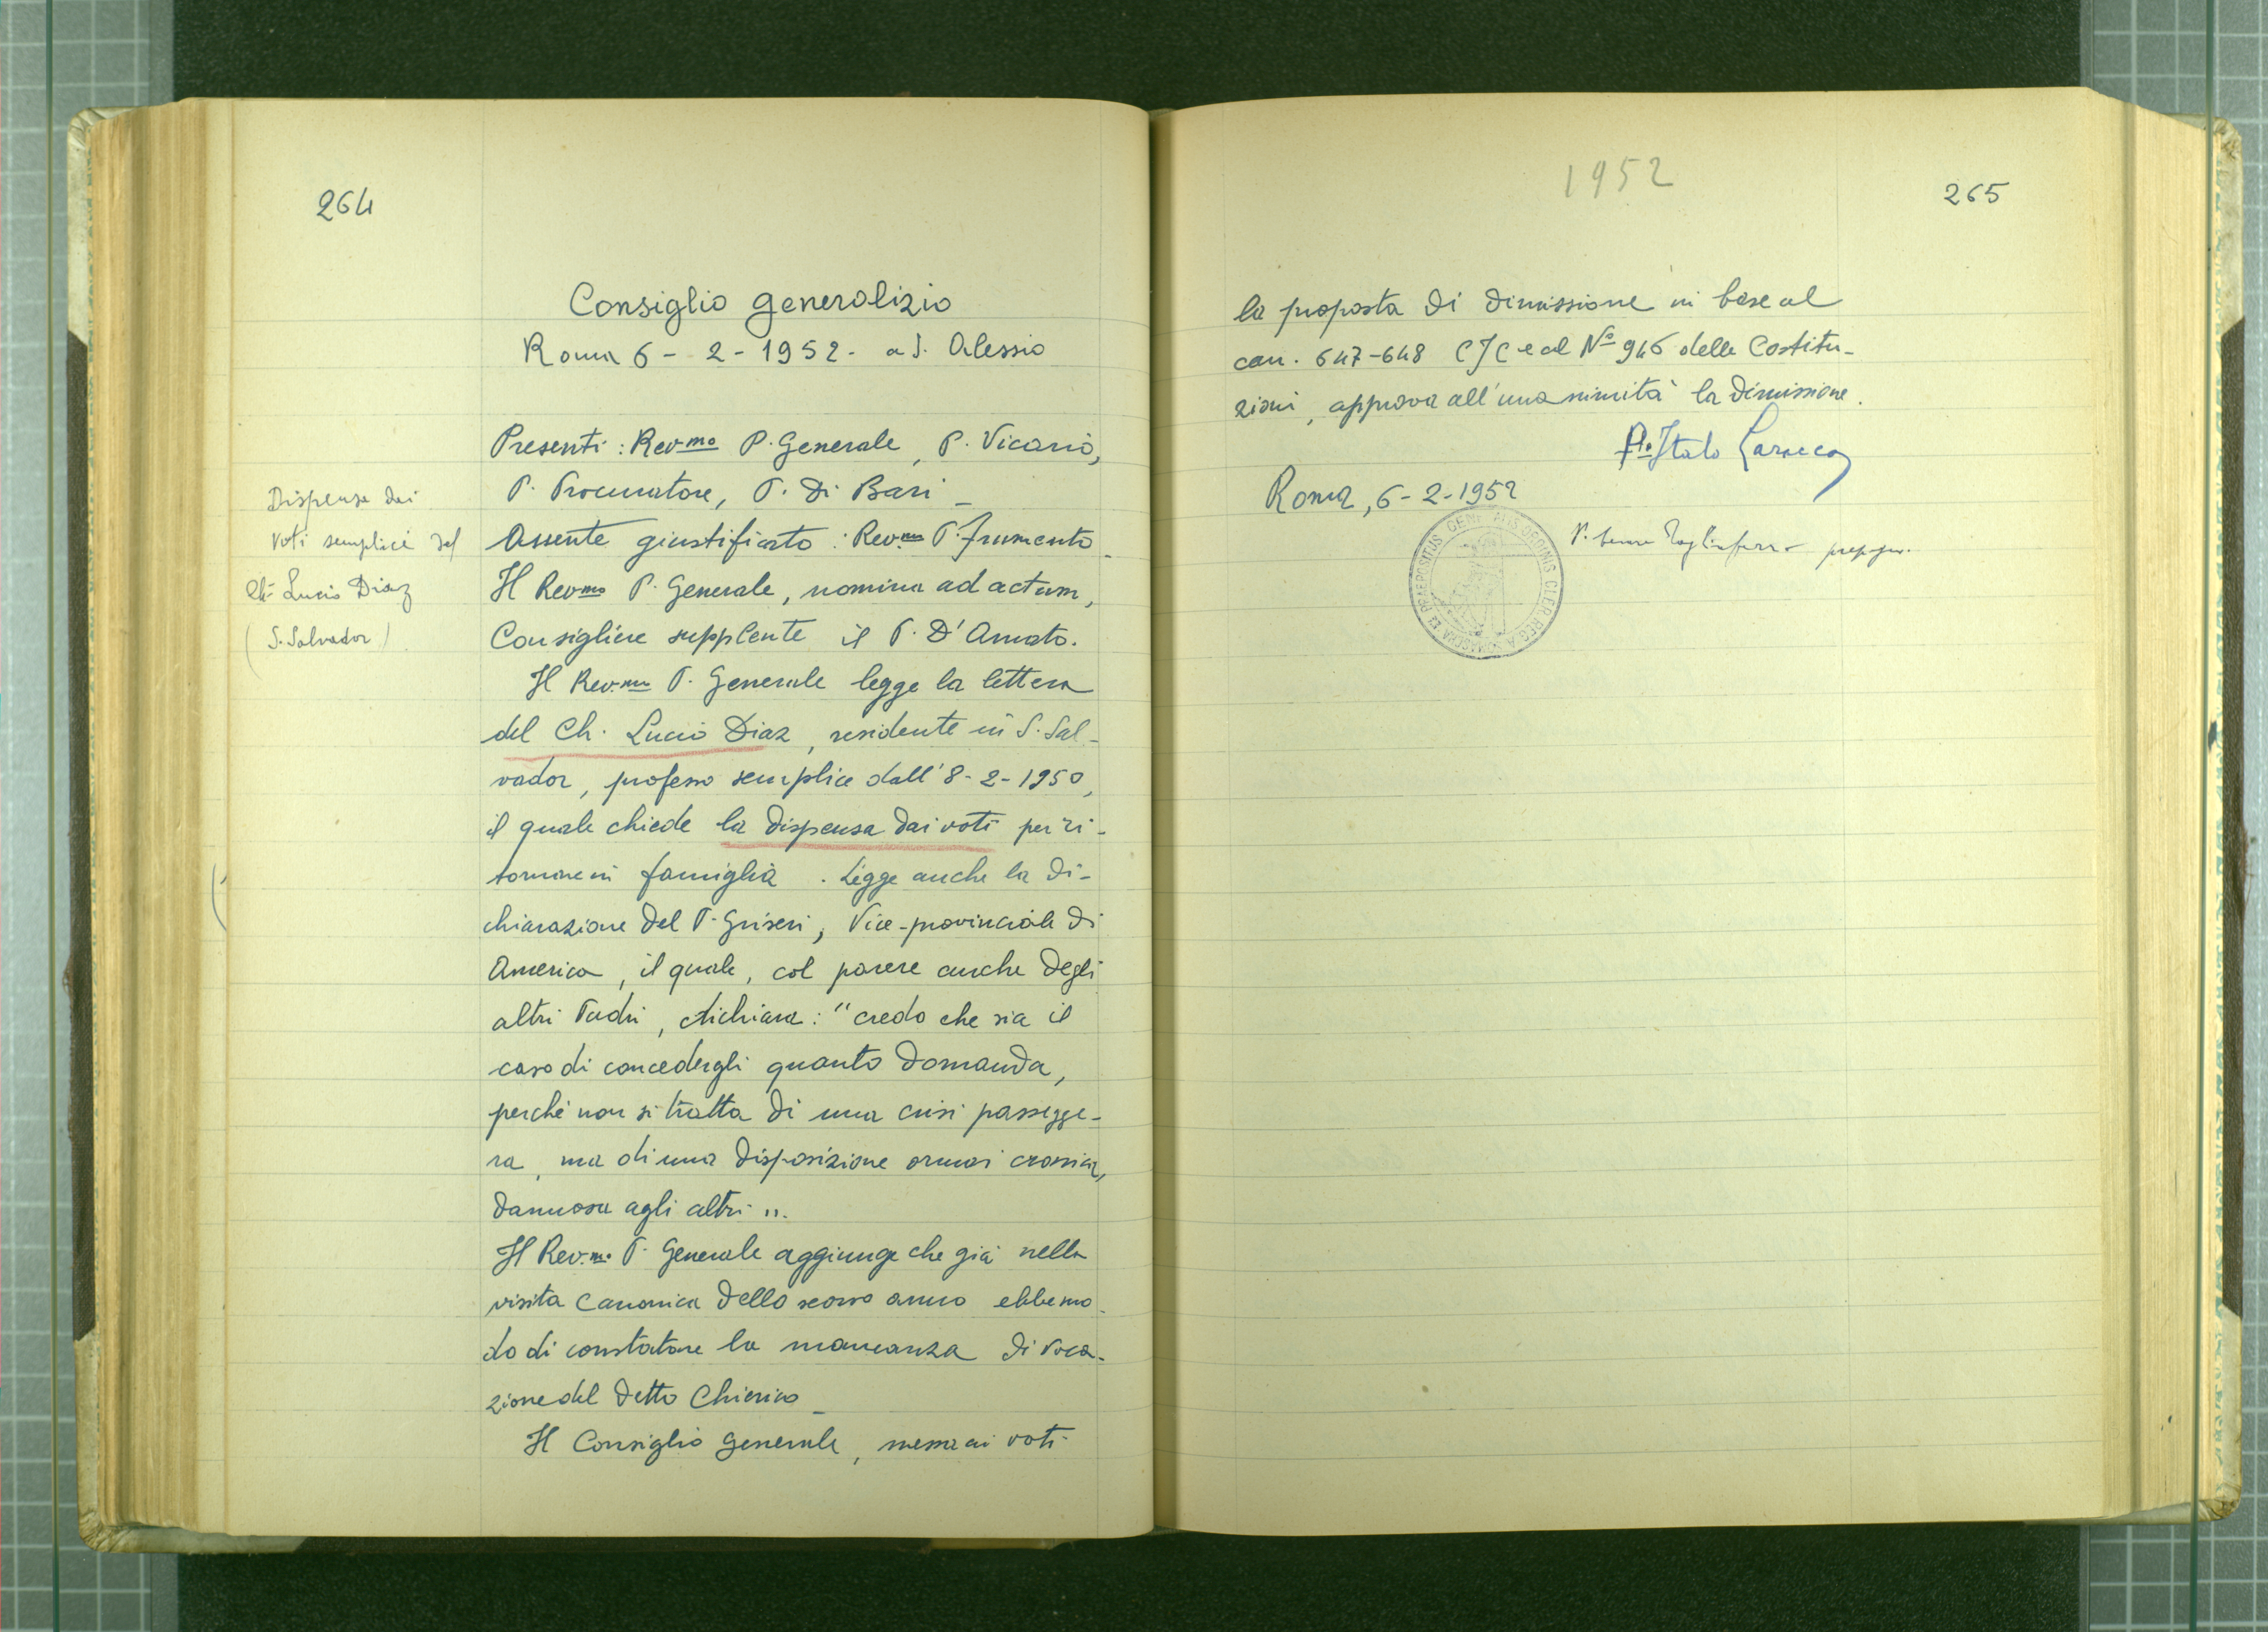 264
Consiglio generalizio
Roma 6 - 2 - 1952 - a S. Alessio
Presenti : Rev.mo P. Generale, P. Vicario,
P. Procuratore, P. Di Bari -
Assente giustificato : Rev.mo P. Frumento.
Il Rev.mo P. Generale, nomina ad actum,
Consigliere supplente il P. D'Amato.
Il Rev.mo P. Generale legge la lettera
del Ch. Lucio Diaz, residente in S. Sal-
vador, professo semplice dall' 8-2-1950,
il quale chiede la dispensa dai voti per ri-
tornare in famiglia. Legge anche la di-
chiarazione del P. Griseri, Vice-provinciale di
America, il quale, col parere anche degli
altri Padri, dichiara: "credo che sia il
caso di concedergli quanto domanda,
perché non si tratta di una crisi passegge-
ra, ma di una disposizione ormai cronica,
dannosa agli altri".
Il Rev.mo P. Generale aggiunge che già nella
visita canonica dello scorso anno ebbe mo-
do di constatare la mancanza di voca-
zione del detto Chierico -
Il Consiglio Generale, messa ai voti
Dispensa dai
voti semplici del
Ch. Lucio Diaz
(S. Salvador)
1952
265
la proposta di dimissione in base al
can. 647-648 CJC e al N° 946 delle Costitu-
zioni, approva all'unanimità la dimissione.
P. Italo Laracca
Roma, 6-2-1952
P. Tagliaferro prep. gen.
PRAEPOSITUS GENERALIS ORDINIS CLER. REG. A SOMASCHA